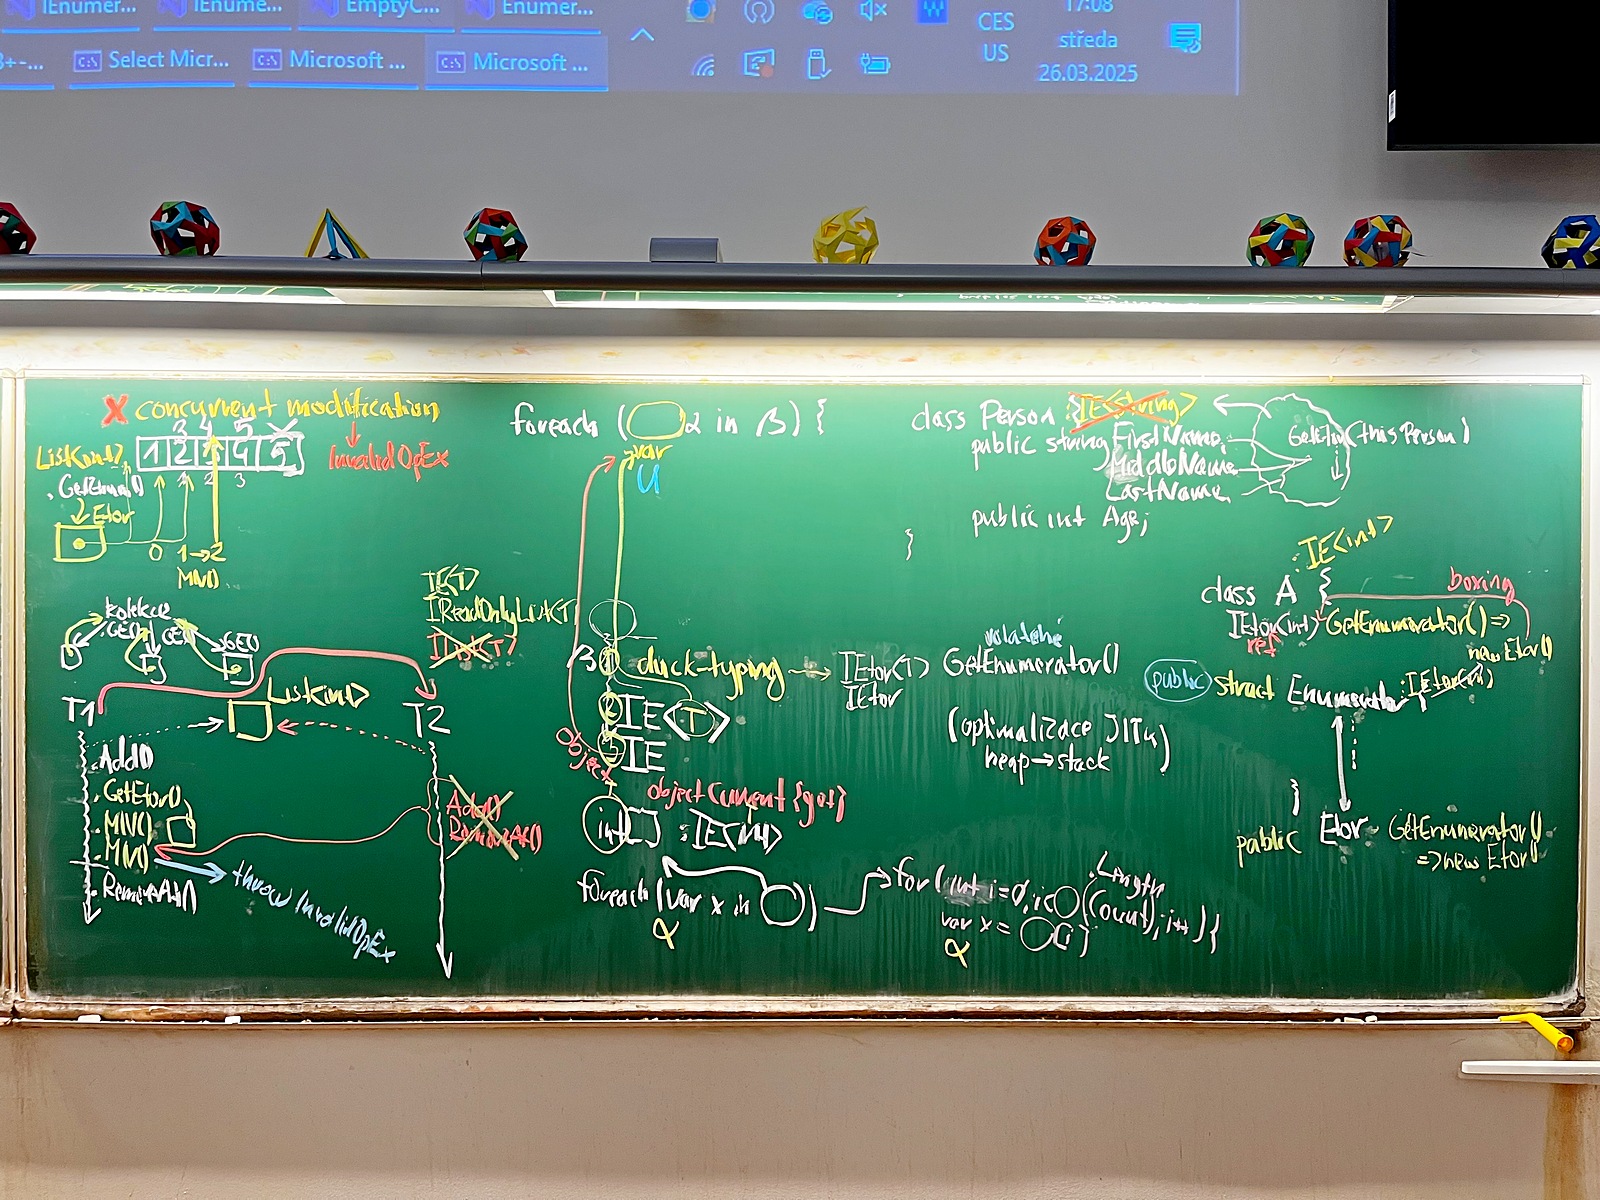 IEnumer...
IEnume...
EmptyC...
Enumer...
Select Micr...
Microsoft ...
Microsoft ...
CES
US
17:08
středa
26.03.2025
X concurrent modification
3 4 5
List<int>
1 2 3 4 5
InvalidOpEx
.GetEnum()
1 2 3
Etor
0 1→2
MN()
kolekce
GE() GE() GE()
T1
List<int>
T2
IE<T>
IReadOnlyList<T>
IList<T>
.Add()
.GetEtor()
.MN()
.MN()
.RemoveAt()
throw InvalidOpEx
Add()
RemoveAt()
foreach ( α in β) {
var
U
}
β ① duck-typing → IEtor<T>
IEtor
② IE<T>
③ IE
object
object Current {get}
int[] : IE<int>
foreach (var x in )
α
for (int i=0; i< .Length
(Count); i++) {
var x = [i]
α
volatelné
GetEnumerator()
(optimalizace JITu)
heap → stack
class Person {
:IE<string>
public string FirstName;
MiddleName
LastName
public int Age;
GetEtor(this Person)
IE<int>
class A {
boxing
IEtor<int> GetEnumerator() =>
ref
new Etor()
public struct Enumerator : IEtor<int>
}
public Etor GetEnumerator()
=> new Etor()